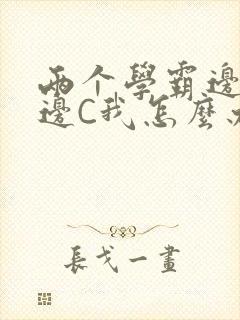 兩个學霸邊
邊C我怎麼
長戈一畫